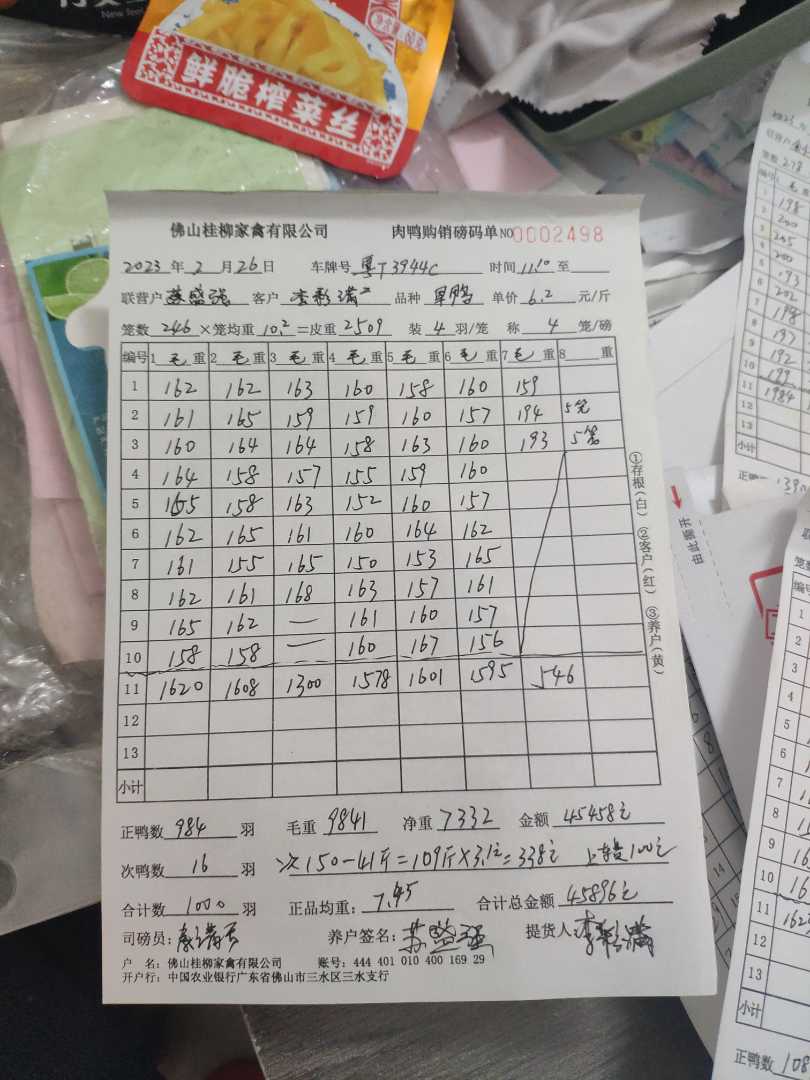 鲜脆榨菜丝
佛山桂柳家禽有限公司 肉鸭购销磅码单 NO0002498
2023 年 2 月 26 日 车牌号 粤T3944C 时间 11:10 至
联营户 苏盛强 客户 李彩满 品种 单价 6.2 元/斤
笼数 246 ×笼均重 10.2 =皮重 2509 装 4 羽/笼 称 4 笼/磅
编号 1 毛 重 2 毛 重 3 毛 重 4 毛 重 5 毛 重 6 毛 重 7 毛 重 8 重
1 162 162 163 160 158 160 159
2 161 165 159 159 160 157 194 5笼
3 160 164 164 158 163 160 193 5笼
4 164 158 157 155 159 160
5 165 158 163 152 160 157
6 162 165 161 160 164 162
7 161 155 165 150 153 165
8 162 161 168 163 157 161
9 165 162 — 161 160 157
10 158 158 — 160 167 156
11 1620 1608 1300 1578 1601 1595 546
12
13
小计
正鸭数 984 羽 毛重 9841 净重 7332 金额 45458元
次鸭数 16 羽 次150-41斤=109斤×3.1元=338元 上车费100元
合计数 1000 羽 正品均重: 7.45 合计总金额 45896元
司磅员: 养户签名: 苏盛强 提货人: 李彩满
户 名: 佛山桂柳家禽有限公司 账号: 444 401 010 400 169 29
开户行: 中国农业银行广东省佛山市三水区三水支行
①存根(白) ②客户(红) ③养户(黄)
由此撕开